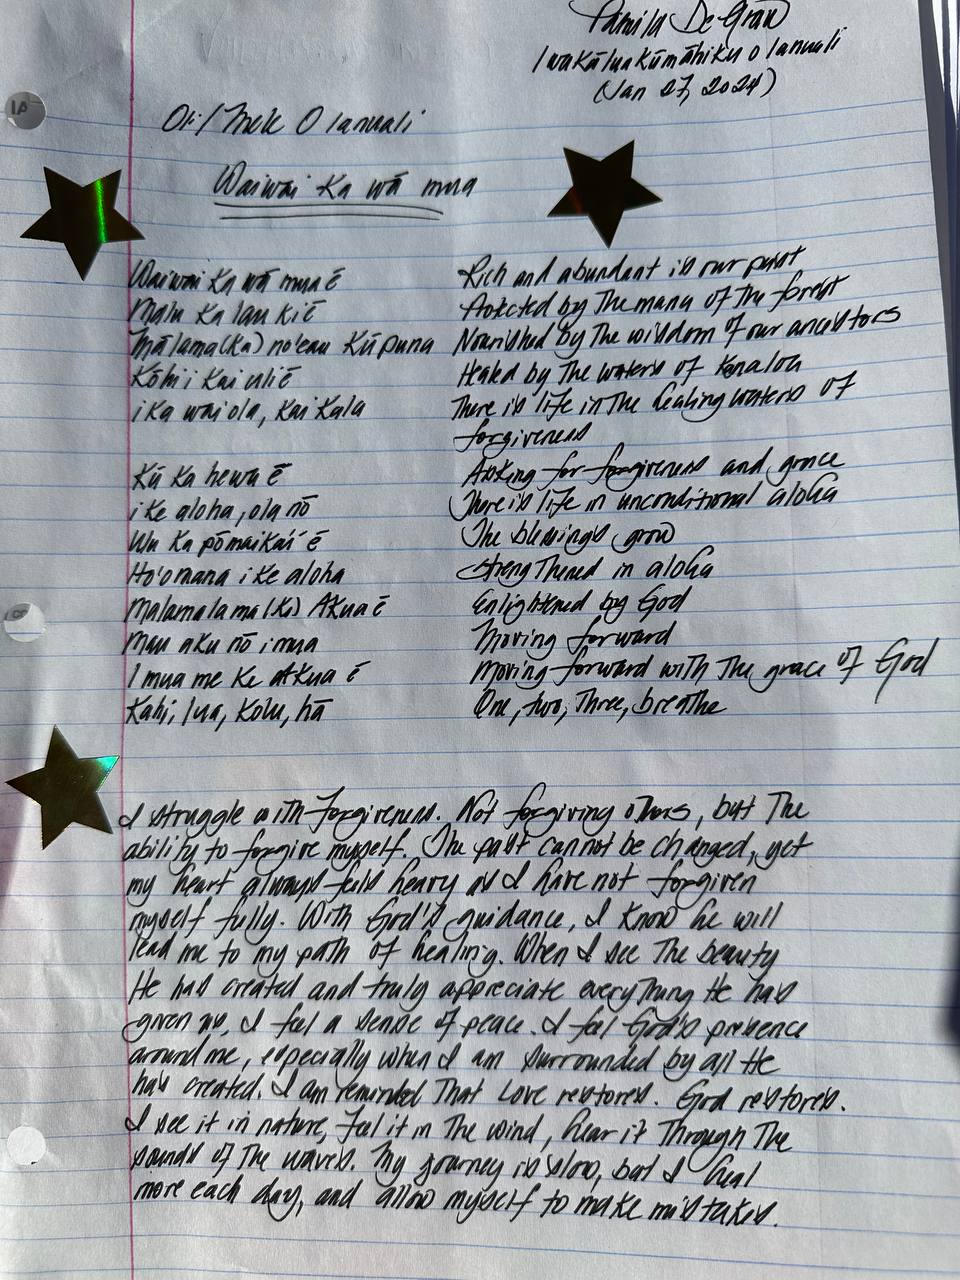 Pamila DeGrau
Iwakāluakūmāhiku o Ianuali
(Jan 27, 2024)
Oli/Mele O Ianuali
Waiwai Ka wā mua
Waiwai Ka wā mua ē Rich and abundant is our past
Malu Ka lau kiē Protected by The mana of The forest
Mālama(Ka) no'eau Kūpuna Nourished by The wisdom of our ancestors
Kōhi i Kai uliē Healed by The waters of Kanaloa
i Ka wai ola, Kai Kala There is life in The healing waters of
forgiveness
Kū Ka hewa ē Asking for forgiveness and grace
i Ke aloha, ola nō There is life in unconditional aloha
Ulu Ka pōmaikai' ē The blessings grow
Ho'omana i Ke aloha strengThened in aloha
Malamalama(Ke) Akua ē Enlightened by God
Mau aku nō i mua Moving forward
I mua me Ke Akua ē Moving forward with The grace of God
Kahi, lua, Kolu, hā One, two, Three, breathe
I struggle with Forgiveness. Not forgiving others, but The
ability to forgive myself. The past cannot be changed, yet
my heart always feels heavy as I have not forgiven
myself fully. With God's guidance, I Know he will
lead me to my path of healing. When I see The beauty
He has created and truly appreciate everyThing He has
given us, I feel a sense of peace. I feel God's presence
around me, especially when I am surrounded by all He
has created. I am reminded That Love restores. God restores.
I see it in nature, Feel it in The wind, hear it Through The
sounds of The waves. My journey is slow, but I heal
more each day, and allow myself to make mistakes.